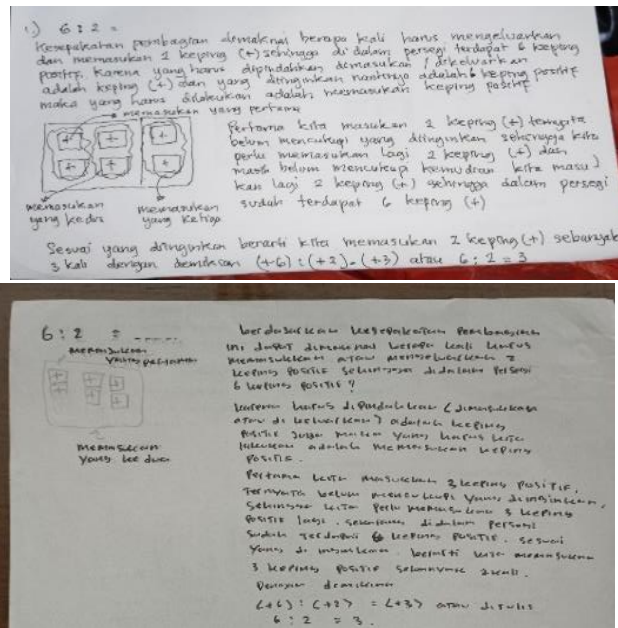 1.) 6 : 2 =
Kesepakatan pembagian dimaknai berapa kali harus mengeluarkan
dan memasukan 2 keping (+) sehingga di dalam persegi terdapat 6 keping
positif. Karena yang harus dipindahkan dimasukan / dikeluarkan
adalah keping (+) dan yang diinginkan nantinya adalah 6 keping positif
maka yang harus dilakukan adalah memasukan keping positif
memasukan yang pertama
+ + +
+ + +
memasukan
yang kedua
memasukan
yang ketiga
Pertama kita masukan 2 keping (+) ternyata
belum mencukupi yang diinginkan sehingga kita
perlu memasukan lagi 2 keping (+) dan
masih belum mencukupi kemudian kita masu)
kan lagi 2 keping (+) sehingga dalam persegi
sudah terdapat 6 keping (+)
Sesuai yang diinginkan berarti kita memasukan 2 keping (+) sebanyak
3 kali dengan demikian (+6) : (+2) = (+3) atau 6 : 2 = 3
6 : 2 = .....
memasukkan
yang pertama
+ + +
+ + +
memasukkan
yang ke dua
berdasarkan kesepakatan Pembagian
ini dapat dimaknai berapa kali harus
memasukkan atau mengeluarkan 2
keping positif sehingga didalam Persegi
6 keping positif ?
karena harus dipindahkan (dimasukkan
atau di keluarkan) adalah keping
positif juga maka yang harus kita
lakukan adalah memasukkan keping
positif.
Pertama kita masukkan 3 keping positif,
Ternyata belum mencukupi yang diinginkan,
sehingga kita Perlu memasukkan 3 keping
positif lagi. sekarang didalam Persegi
sudah terdapat 6 keping positif. sesuai
yang di inginkan berarti kita memasukkan
3 keping positif sebanyak 2 kali.
Dengan demikian
(+6) : (+2) = (+3) atau ditulis
6 : 2 = 3.